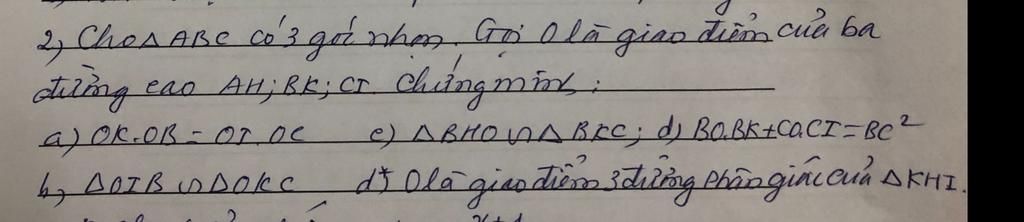 2, Cho △ABC có 3 góc nhọn. Gọi O là giao điểm của ba
đường cao AH; BK; CI. Chứng minh:
a) OK.OB = OI.OC c) △BHO ∽ △BKC; d) BO.BK+CO.CI=BC²
b, △OIB ∽ △OKC d*) O là giao điểm 3 đường phân giác của △KHI.